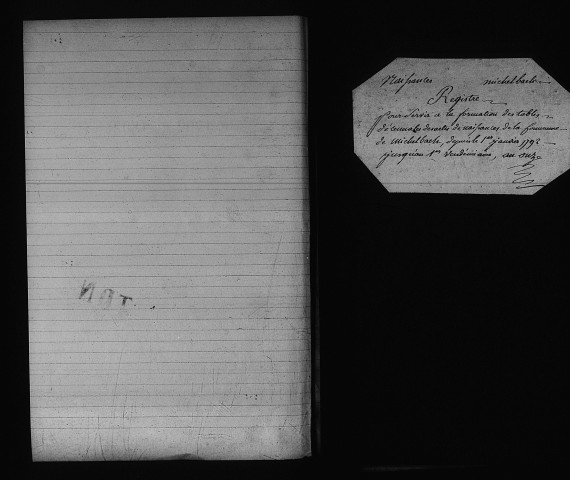 Naissances Michelbach
Registre
pour servir a la formation des tables
décennales des actes de naissances de la Commune
de Michelbach, depuis le 1er janvier 1792
jusqu'au 1er Vendémiaire, an onze